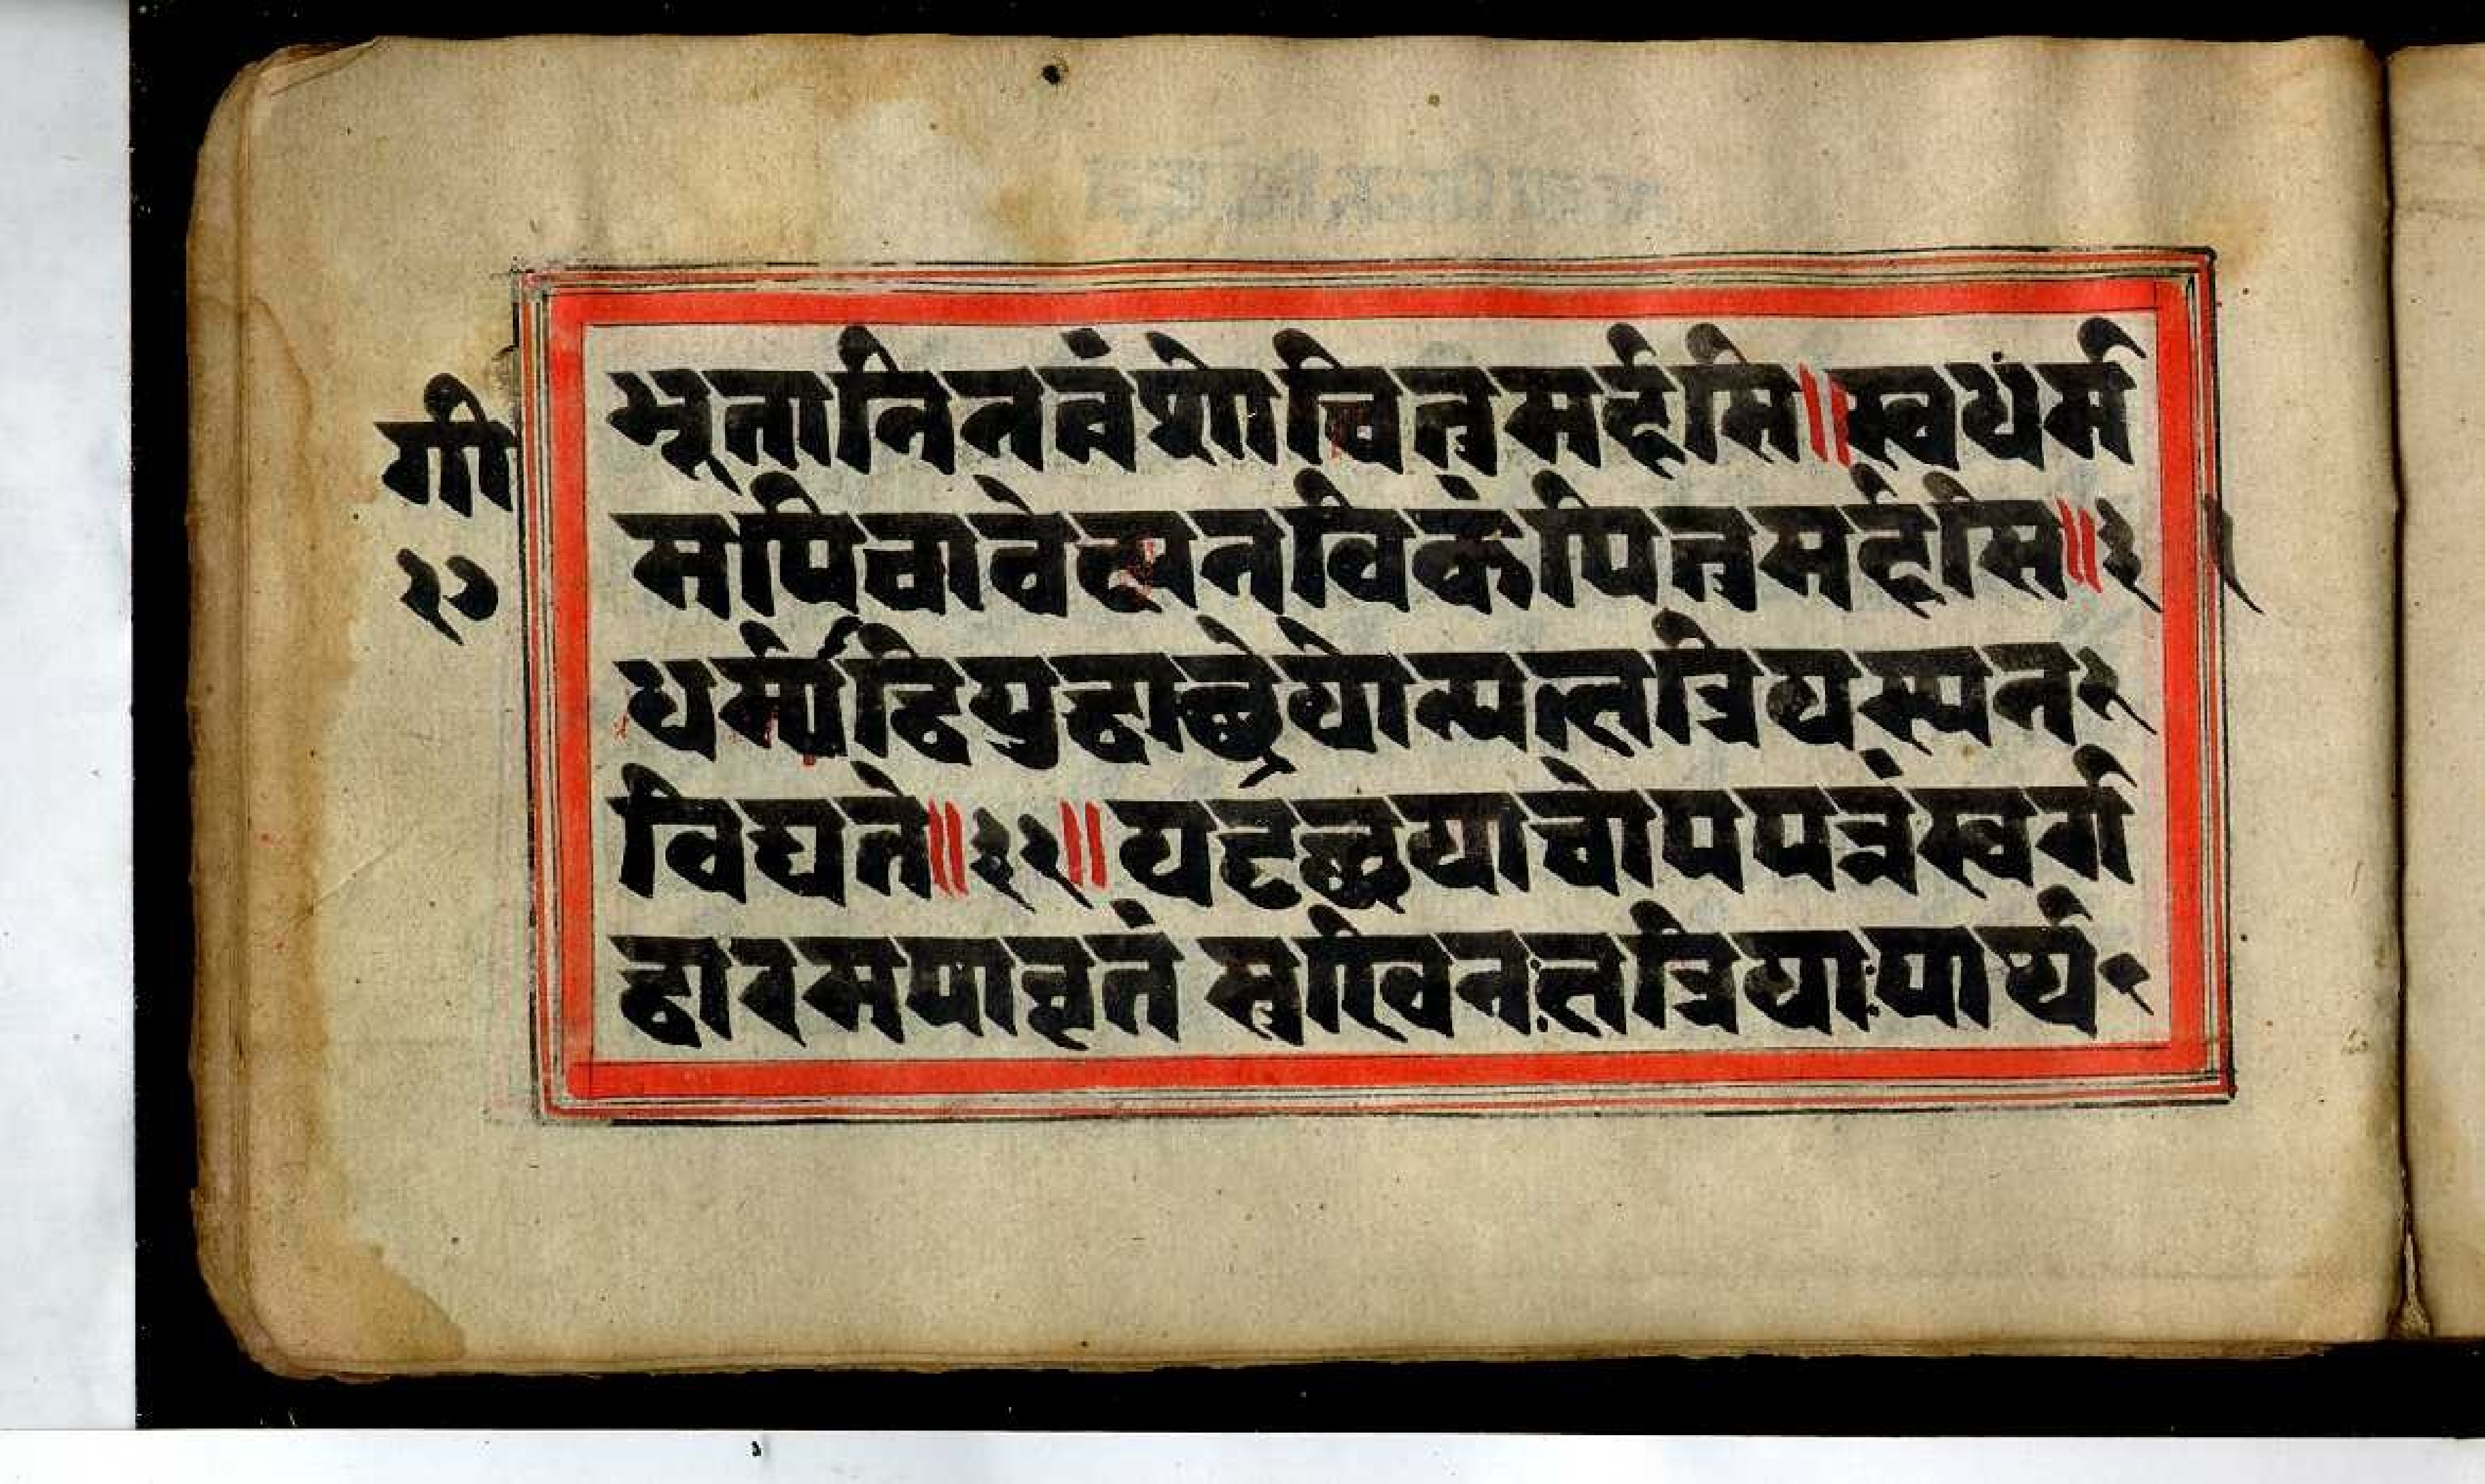 गी
२०
भूतानिनत्वंशोचितुमर्हसि॥स्वधर्म
मपिचावेक्ष्यनविकंपितुमर्हसि॥३१
धर्माद्धियुद्धाछ्रेयोन्यत्क्षत्रियस्यन
विद्यते॥३२॥यदृछयाचोपपन्नंस्वर्ग
द्वारमपावृतं सुखिनःक्षत्रियाःपार्थ